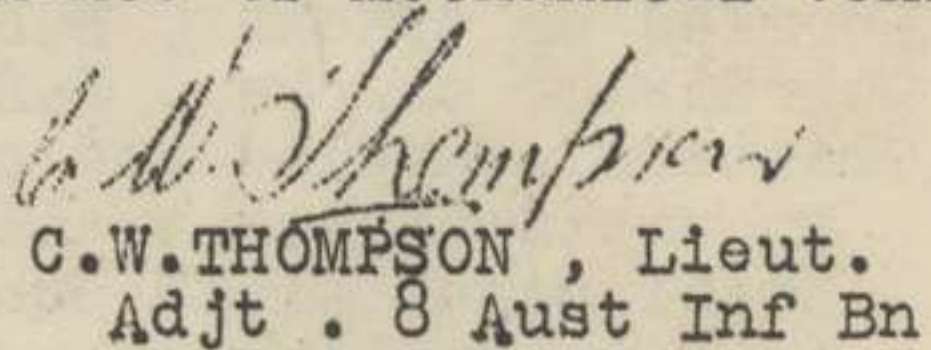 C W Thompson
C.W.THOMPSON , Lieut.
Adjt . 8 Aust Inf Bn